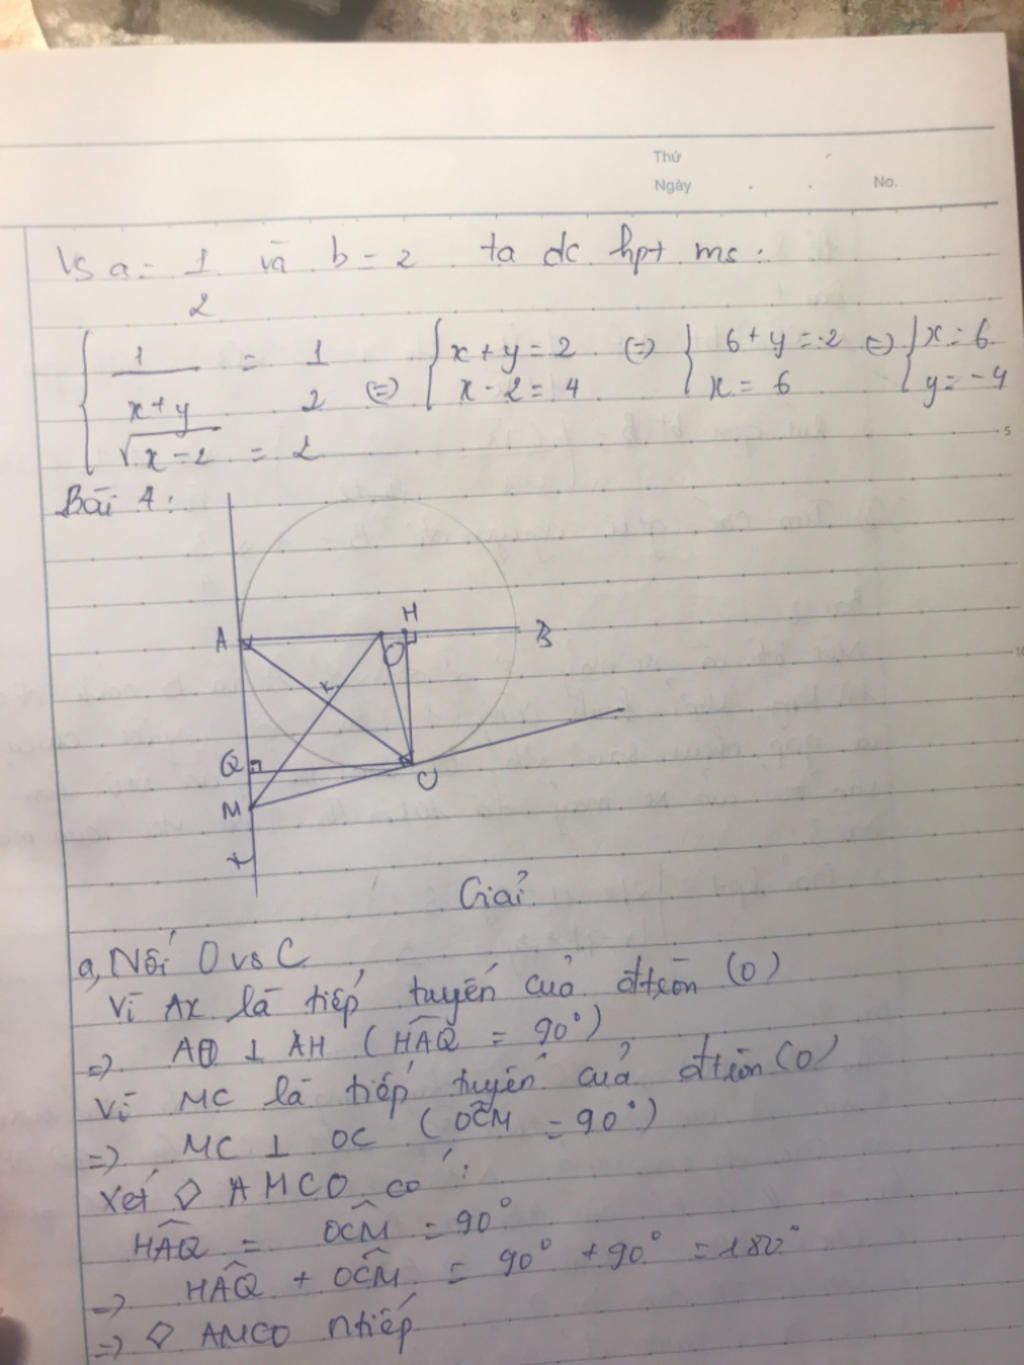 Thứ
Ngày . . No.
Vs a = 1/2 và b = 2 ta dc hpt ms:
{ 1/(x+y) = 1/2 (=) { x+y=2 (=) { 6+y=2 (=) { x=6
√x-2 = 2 x-2=4 x=6 y=-4
5
Bài 4:
H
A B
O
K
10
Q
M C
x
Giải
a, Nối O vs C
Vì Ax là tiếp tuyến của đtròn (O)
=> AQ ⊥ AH (HAQ = 90°)
Vì MC là tiếp tuyến của đtròn (O)
=> MC ⊥ OC (OCM = 90°)
Xét ◇ AMCO có:
HAQ = OCM = 90°
=> HAQ + OCM = 90° + 90° = 180°
=> ◇ AMCO ntiếp